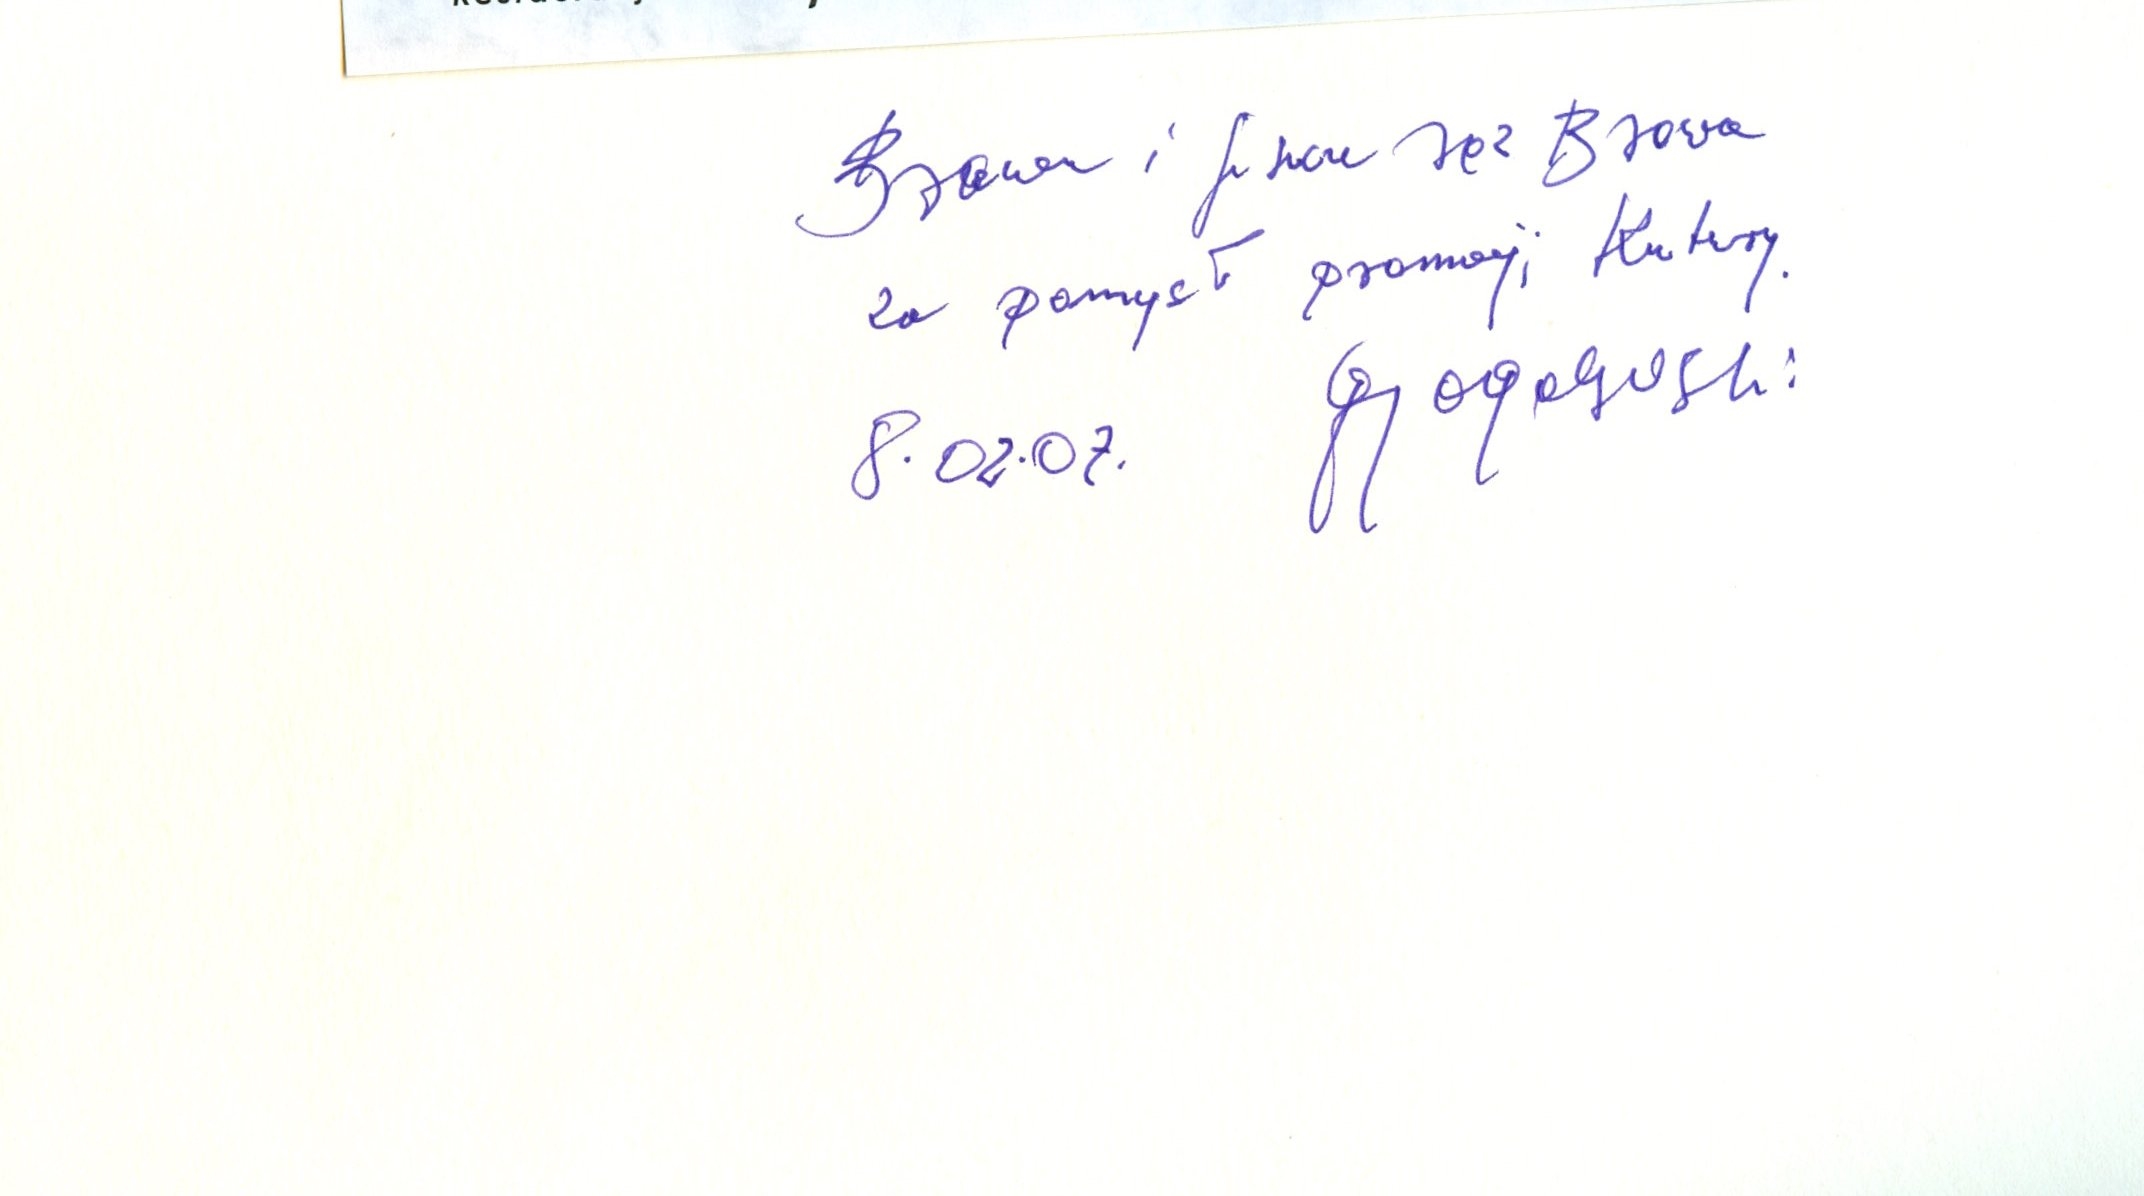 Brawa i jeszcze raz Brawa
za pomysł promocji Kultury.
8.02.07.